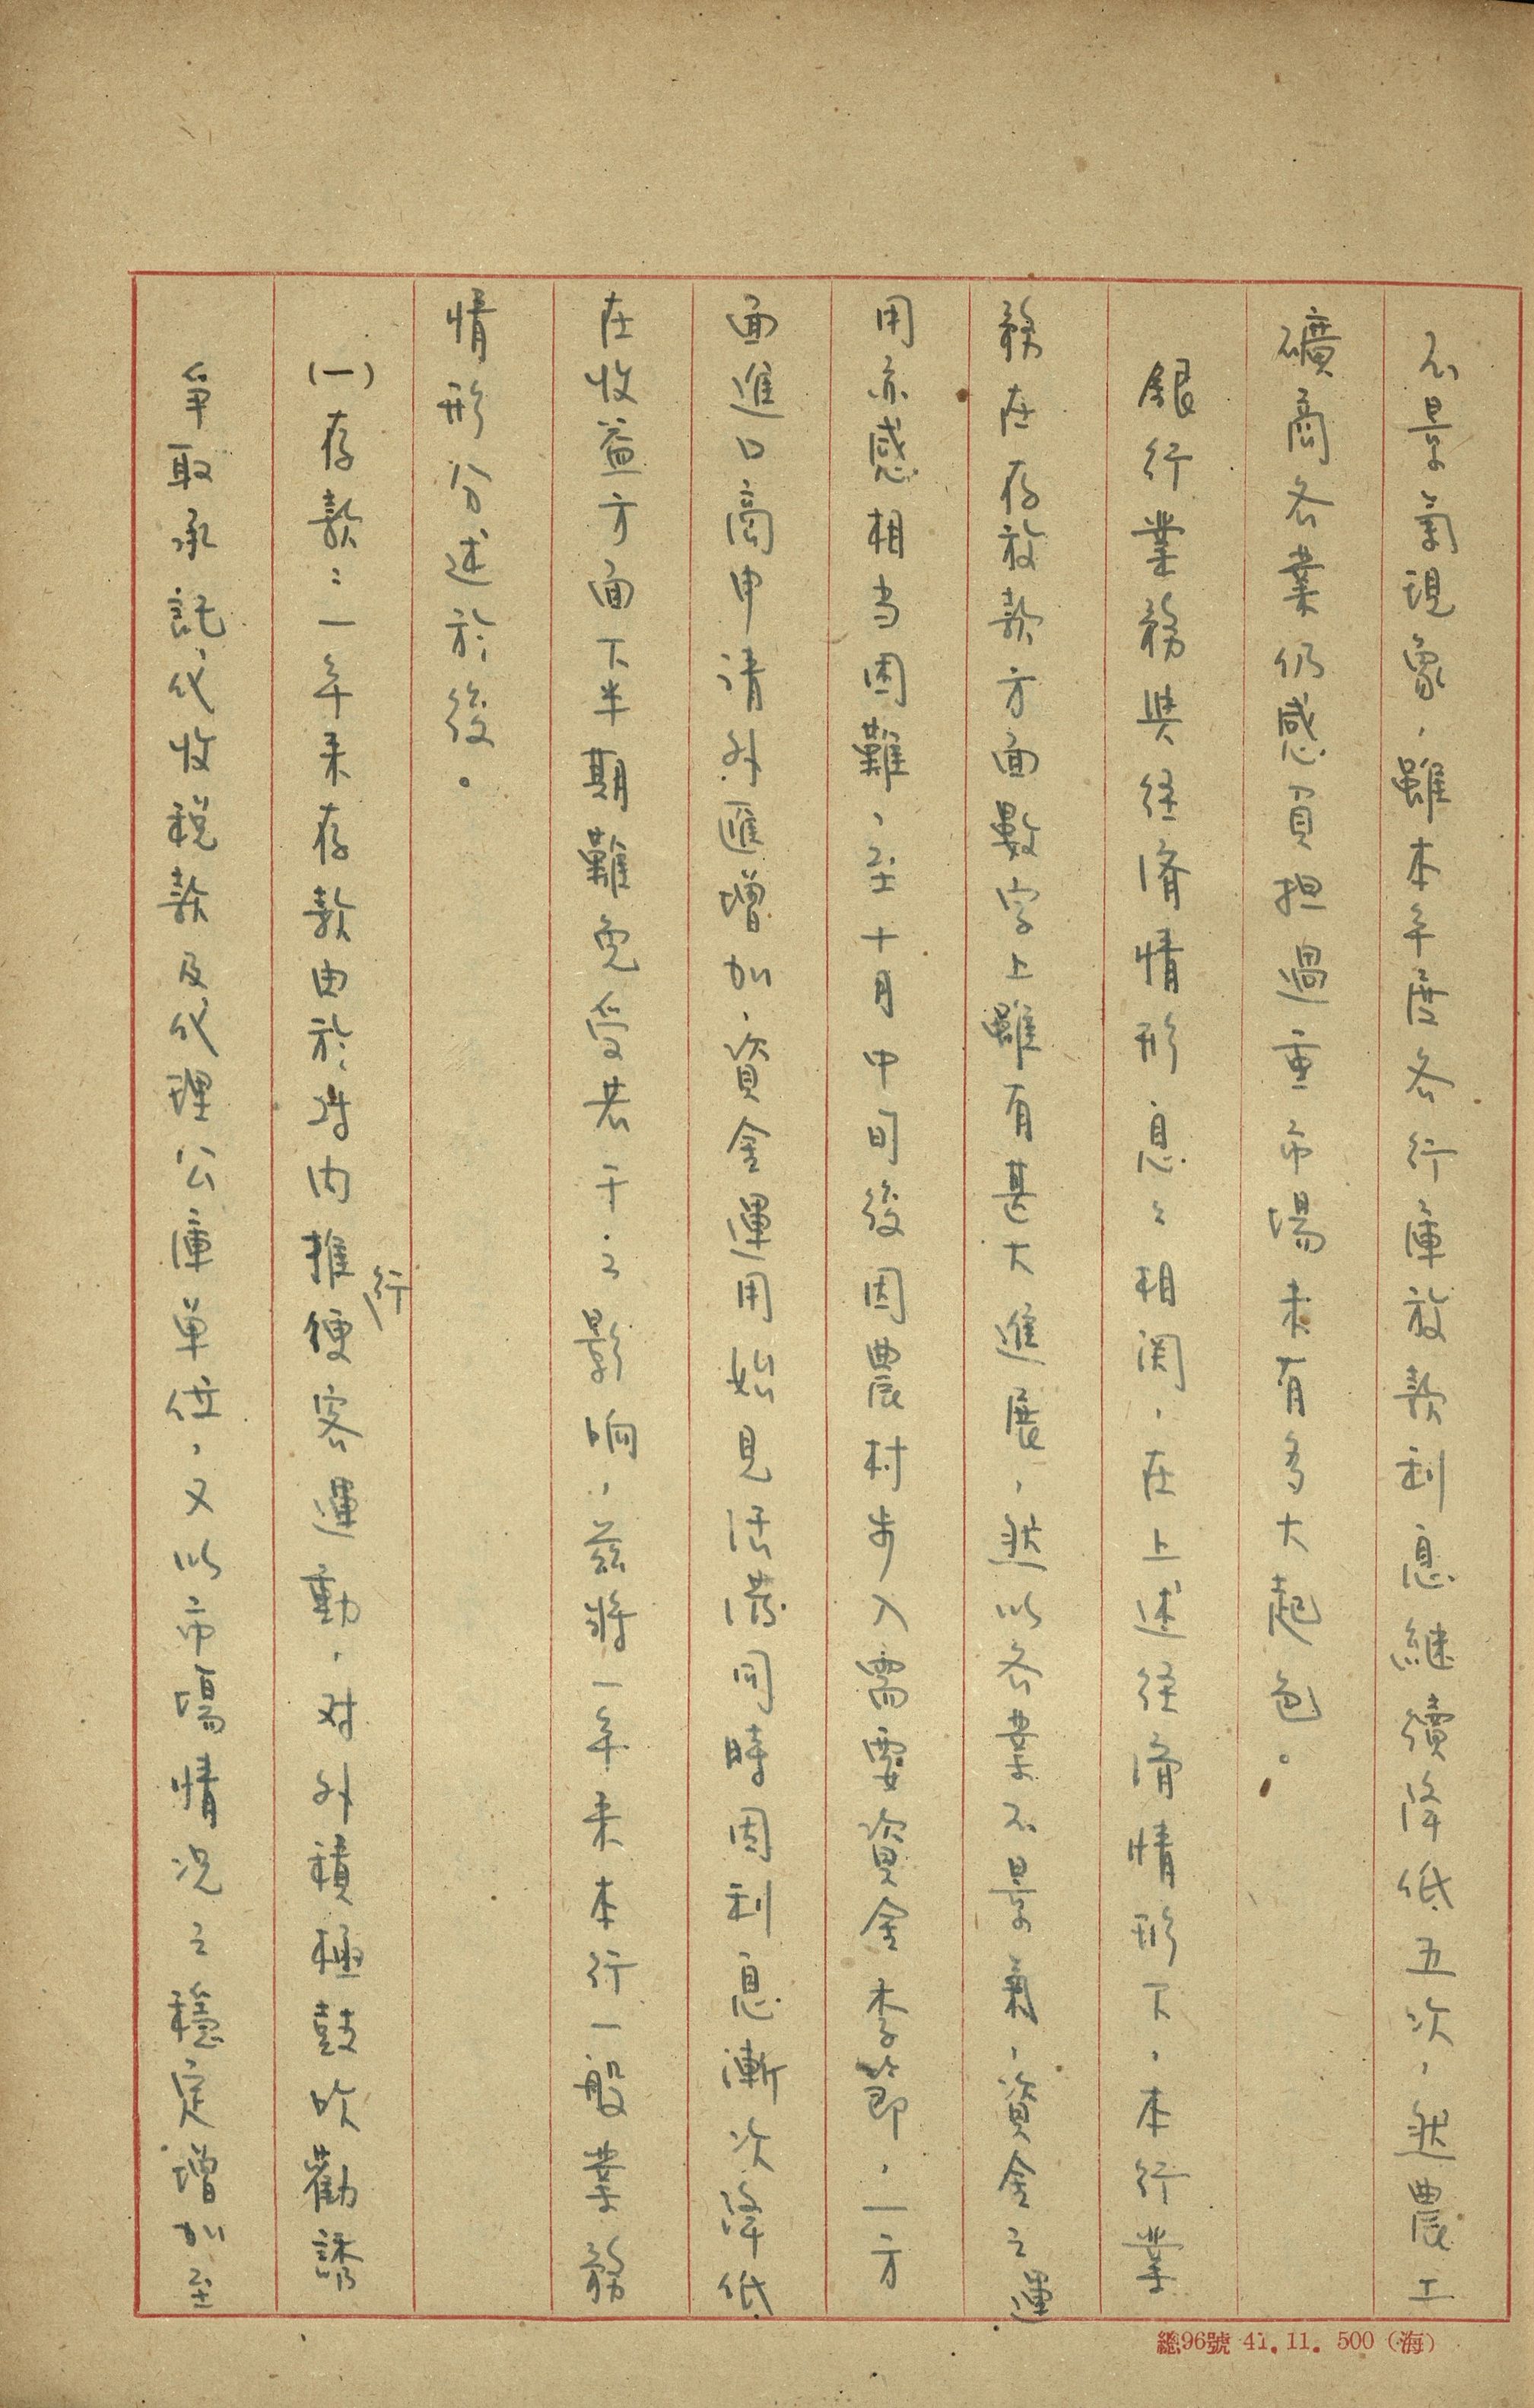 不景氣現象，雖本年度各行庫放款利息継續降低五次，然農工
礦商各業仍感負担過重市場未有多大起色。
銀行業務與経済情形息々相関，在上述経済情形下，本行業
務在存放款方面數字上雖有甚大進展，然以各業不景氣，資金之運
用亦感相当困難，至十月中旬後因農村步入需要資金季節，一方
面進口商申請外匯增加，資金運用始見活潑同時因利息漸次降低
在收益方面下半期難免受若干之影响，茲將一年來本行一般業務
情形分述於後。
(一)存款：一年来存款由於対内推行便客運動，対外積極鼓吹勸誘
爭取承託代收稅款及代理公庫单位，又以市場情況之穩定增加至
總96號 41.11. 500（海）